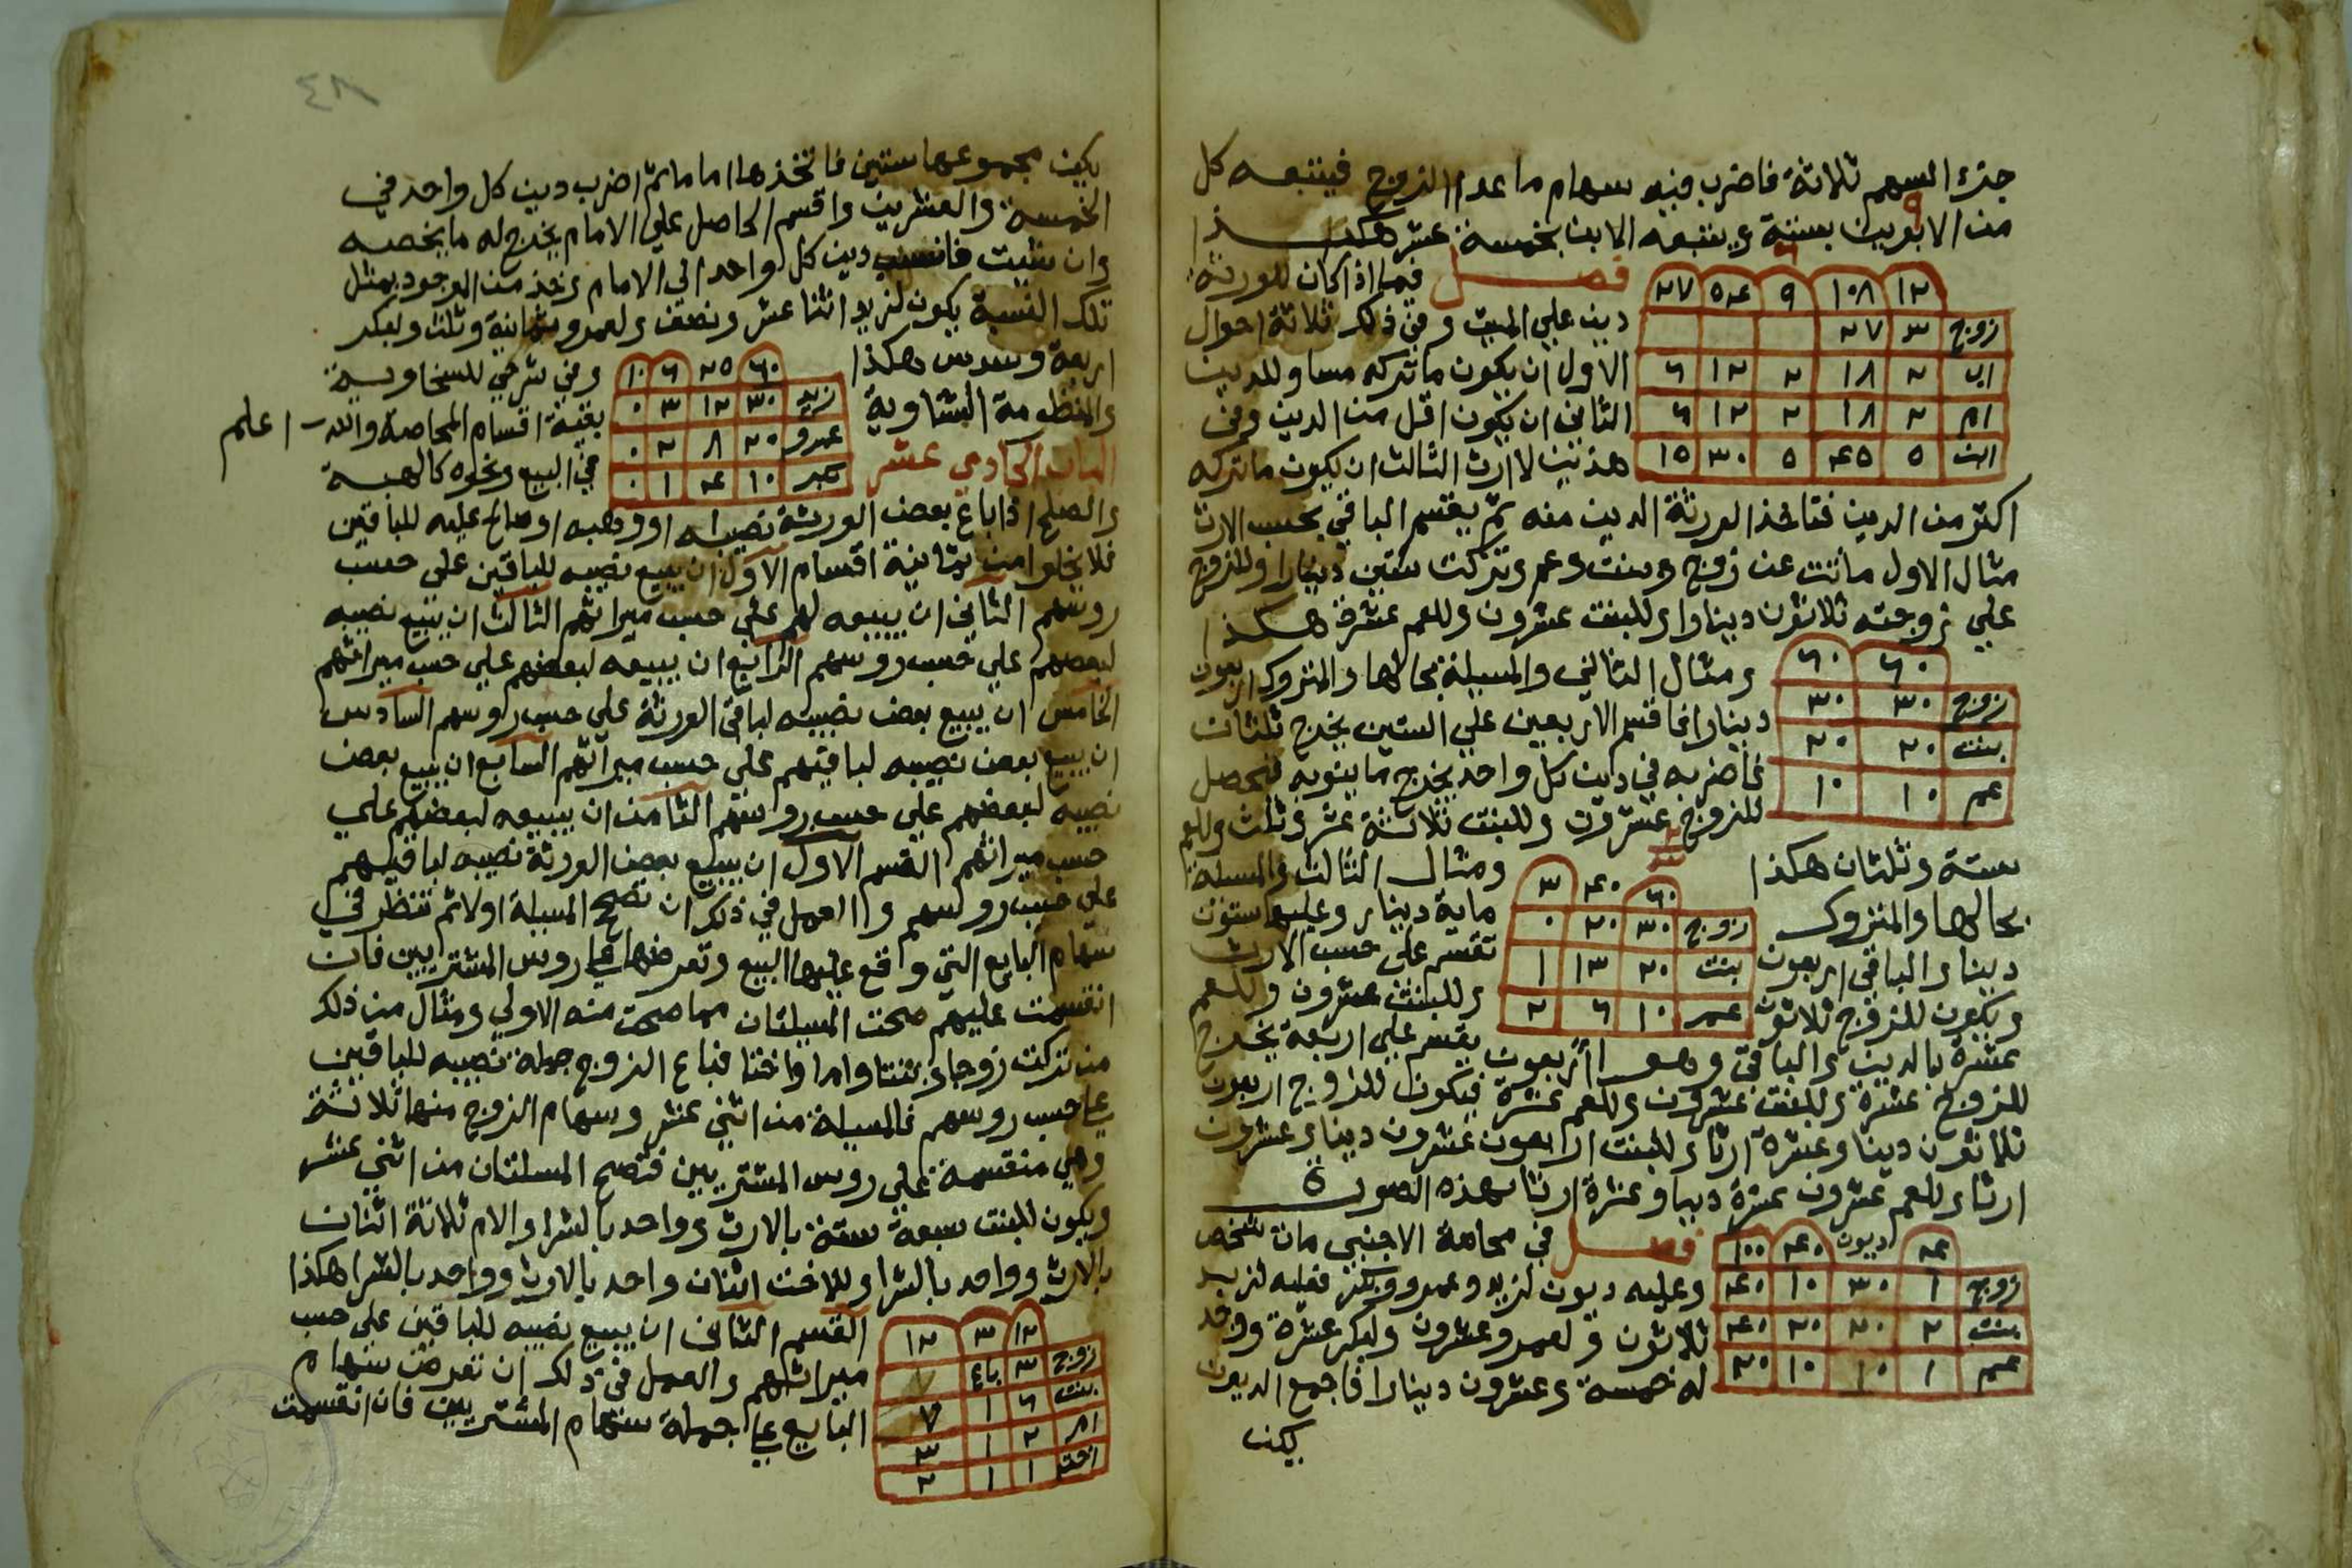 جزء السهم ثلاثة فاضرب فيه سهام ما عدا الزوج فيتبعه كل
من الابوين بستة ويتبعه الابن بخمسة عشر هكذا
١٢ ١٠٨ ٩ ٥٤ ٢٧
زوج ٣ ٢٧
اب ٢ ١٨ ٢ ١٢ ٦
ام ٢ ١٨ ٢ ١٢ ٦
ابن ٥ ٤٥ ٥ ٣٠ ١٥
فصل فيما اذا كان للورثة
دين علي الميت وفي ذلك ثلاثة احوال
الاول ان يكون ما تركه مساو للدين
الثاني ان يكون اقل من الدين وفي
هذين لا ارث الثالث ان يكون ما تركه
اكثر من الدين فتاخذ الورثة الدين منه ثم يقسم الباقي بحسب الارث
مثال الاول ماتت عن زوج وبنت وعم وتركت ستين دينارا وللزوج
علي زوجته ثلاثون دينارا وللبنت عشرون وللعم عشرة هكذا
٦٠ ٦٠
زوج ٣٠ ٣٠
بنت ٢٠ ٢٠
عم ١٠ ١٠
ومثال الثاني والمسيلة بحالها والمتروك اربعون
دينارا فاقسم الاربعين علي الستين يخرج ثلثان
فاضربه في دين كل واحد يخرج ما ينوبه فيحصل
للزوج عشرون وللبنت ثلاثة عشر وثلث وللعم
ستة وثلثان هكذا
٦٠ ٤٠ ٣
زوج ٣٠ ٢٠ ٠
بنت ٢٠ ١٣ ١
عم ١٠ ٦ ٢
ومثال الثالث والمسيلة
بحالها والمتروك ماية دينار وعليها ستون
دينارا والباقي اربعون تقسم على حسب الارث
ويكون للزوج ثلاثون وللبنت عشرون وللعم
عشرة بالدين والباقي وهو اربعون يقسم علي اربعة يخرج
للزوج عشرة وللبنت عشرون وللعم عشرة فيكون للزوج اربعون
ثلاثون دينا وعشرة ارثا وللبنت اربعون عشرون دينا وعشرون
ارثا وللعم عشرون عشرة دينا وعشرة ارثا بهذه الصورة
٤ ديون ٤٠ ١٠٠
زوج ١ ٣٠ ١٠ ٤٠
بنت ٢ ٢٠ ٢٠ ٤٠
عم ١ ١٠ ١٠ ٢٠
فصل في محاصة الاجنبي مات شخص
وعليه ديون لزيد وعمرو وبكر فعليه لزيد
ثلاثون ولعمرو عشرون ولبكر عشرة ووجد
له خمسة وعشرون دينارا فاجمع الديون
يكن
٤٨
يكن مجموعها ستين فاتخذها اماما ثم اضرب دين كل واحد في
الخمسة والعشرين واقسم الحاصل علي الامام يخرج له ما يخصه
وان شيت فانسب دين كل واحد الي الامام وخذ من الموجود بمثل
تلك النسبة يكون لزيد اثنا عشر ونصف ولعمرو ثمانية وثلث ولبكر
اربعة وسدس هكذا
٦٠ ٢٥ ٦ ١٠
زيد ٣٠ ١٢ ٣ ٠
عمرو ٢٠ ٨ ٢ ٠
بكر ١٠ ٤ ١ ٠
وفي شرحي للسخاوية
والمنظومة النشاوية بقية اقسام المحاصة والله اعلم
الباب الحادي عشر في البيع ونحوه كالهبة
والصلح اذا باع بعض الورثة نصيبه او وهبه او صالح عليه للباقين
فلا يخلوا من ثمانية اقسام الاول ان يبيع نصيبه للباقين علي حسب
روسهم الثاني ان يبيعه لهم علي حسب ميراثهم الثالث ان يبيع نصيبه
لبعضهم علي حسب روسهم الرابع ان يبيعه لبعضهم علي حسب ميراثهم
الخامس ان يبيع بعض نصيبه لباقي الورثة علي حسب روسهم السادس
ان يبيع بعض نصيبه لباقيهم علي حسب ميراثهم السابع ان يبيع بعض
نصيبه لبعضهم علي حسب روسهم الثامن ان يبيعه لبعضهم علي
حسب ميراثهم القسم الاول ان يبيع بعض الورثة نصيبه لباقيهم
علي حسب روسهم والعمل في ذلك ان تصح المسيلة اولا ثم تنظر في
سهام البايع التي واقع عليها البيع وتعرضها علي روس المشتريين فان
انقسمت عليهم صحت المسيلتان مما صحت منه الاولي ومثال من ذلك
من تركت زوجا وبنتا واما واختا فباع الزوج جملة نصيبه للباقين
علي حسب روسهم فالمسيلة من اثني عشر وسهام الزوج منها ثلاثة
وهي منقسمة علي روس المشتريين فتصح المسلتان من اثني عشر
ويكون للبنت سبعة ستة بالارث وواحد بالشرا والام ثلاثة اثنان
بالارث وواحد بالشرا وللاخت اثنان واحد بالارث وواحد بالشرا هكذا
١٢ ٣ ١٢
زوج ٣ باع
بنت ٦ ١ ٧
ام ٢ ١ ٣
اخت ١ ١ ٢
القسم الثاني ان يبيع نصيبه للباقين علي حسب
ميراثهم والعمل في ذلك ان تعرض سهام
البايع علي جملة سهام المشتريين فان انقسمت